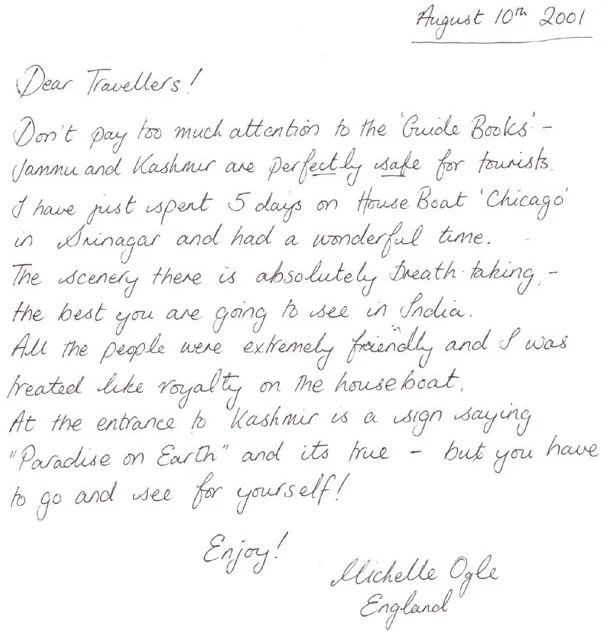 August 10th 2001
Dear Travellers!
Don't pay too much attention to the 'Guide Books' -
Jammu and Kashmir are perfectly safe for tourists.
I have just spent 5 days on House Boat 'Chicago'
in Srinagar and had a wonderful time.
The scenery there is absolutely breath-taking, -
the best you are going to see in India.
All the people were extremely friendly and I was
treated like royalty on the houseboat.
At the entrance to Kashmir is a sign saying
"Paradise on Earth" and its true - but you have
to go and see for yourself!
Enjoy!
Michelle Ogle
England